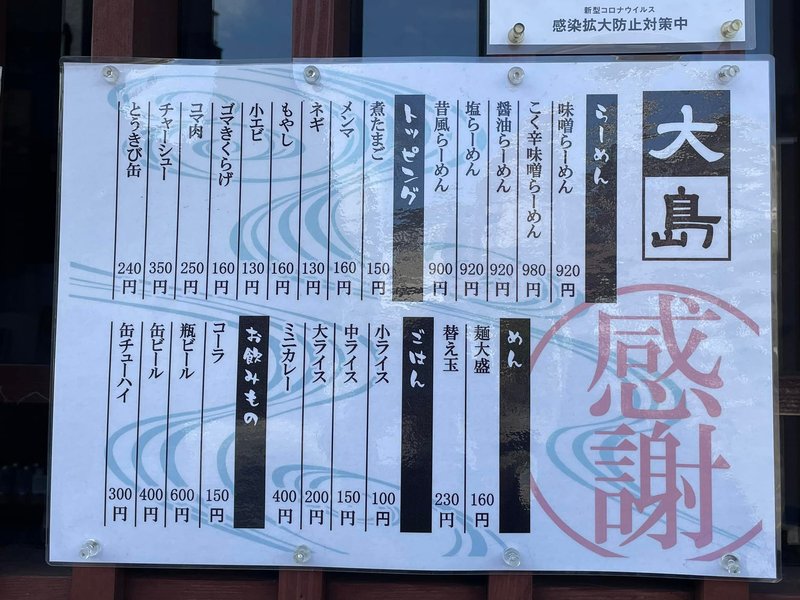 新型コロナウイルス
感染拡大防止対策中
大島
感謝
らーめん
味噌らーめん 920円
こく辛味噌らーめん 980円
醤油らーめん 920円
塩らーめん 920円
昔風らーめん 900円
トッピング
煮たまご 150円
メンマ 160円
ネギ 130円
もやし 160円
小エビ 130円
ゴマきくらげ 160円
コマ肉 250円
チャーシュー 350円
とうきび缶 240円
めん
麺大盛 160円
替え玉 230円
ごはん
小ライス 100円
中ライス 150円
大ライス 200円
ミニカレー 400円
お飲みもの
コーラ 150円
瓶ビール 600円
缶ビール 400円
缶チューハイ 300円